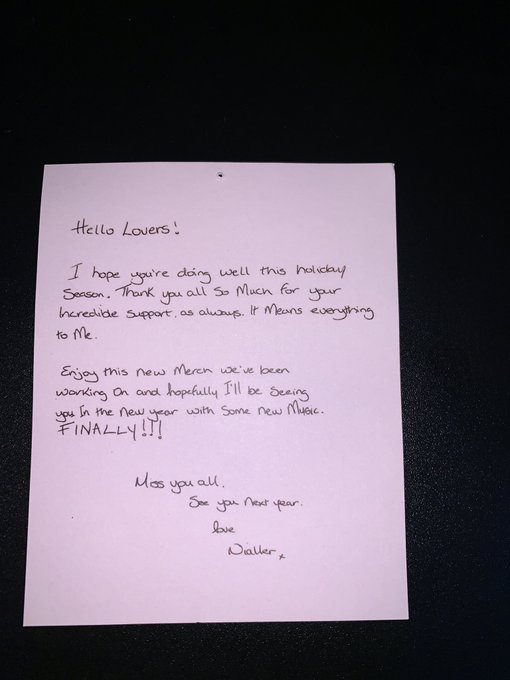 Hello Lovers!
I hope you're doing well this holiday
Season. Thank you all So Much for your
Incredible Support. as always. It Means everything
to Me.
Enjoy this new Merch we've been
working On and hopefully I'll be Seeing
you In the New year with Some new Music.
FINALLY!!!
Miss you all.
See you Next year.
love
Nialler x